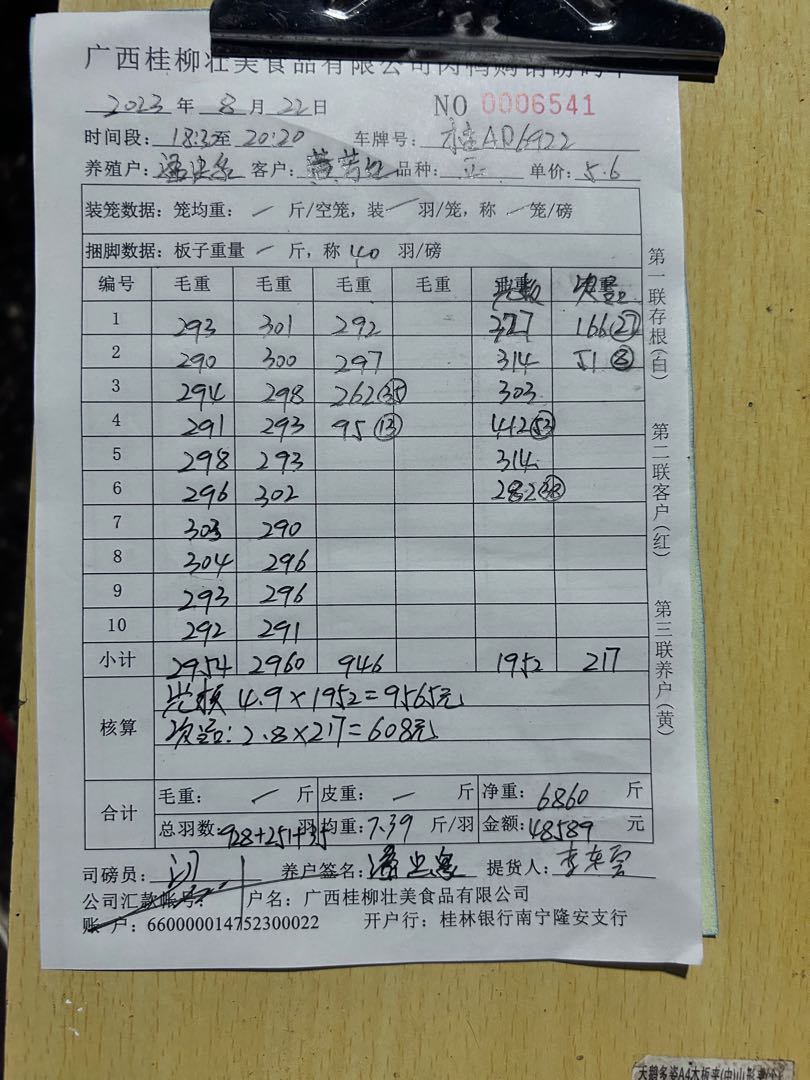 广西桂柳壮美食品有限公司肉鸭购销磅码单
2023 年 8 月 22 日 NO 0006541
时间段: 18:3至 20:20 车牌号: 桂AD6922
养殖户: 客户: 品种: 单价: 5.6
装笼数据: 笼均重: / 斤/空笼, 装 / 羽/笼, 称 / 笼/磅
捆脚数据: 板子重量 / 斤, 称 40 羽/磅
编号 毛重 毛重 毛重 毛重
1 293 301 292 327 166 (27)
2 290 300 297 314 51 (8)
3 294 298 262 (35) 303
4 291 293 95 (13) 412 (53)
5 298 293 314
6 296 302 282 (38)
7 303 290
8 304 296
9 293 296
10 292 291
小计 2954 2960 946 1952 217
核算 4.9×1952=9565元
次品: 2.8×217=608元
合计 毛重: / 斤 皮重: / 斤 净重: 6860 斤
总羽数: 928+251+35 羽 均重: 7.39 斤/羽 金额: 48589 元
司磅员: 养户签名: 提货人:
公司汇款帐号: 户名: 广西桂柳壮美食品有限公司
账 户: 660000014752300022 开户行: 桂林银行南宁隆安支行
第一联存根(白)
第二联客户(红)
第三联养户(黄)